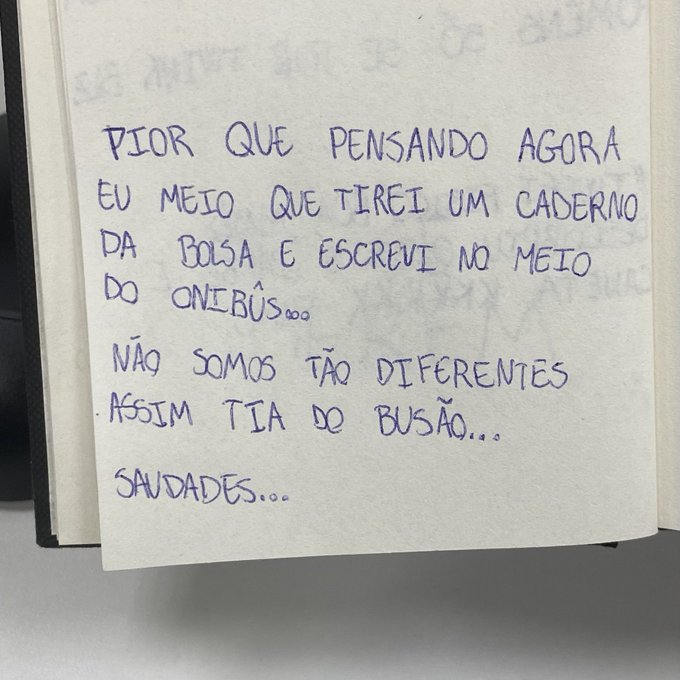 PIOR QUE PENSANDO AGORA
EU MEIO QUE TIREI UM CADERNO
DA BOLSA E ESCREVI NO MEIO
DO ONIBÛS...
NÃO SOMOS TÃO DIFERENTES
ASSIM TIA DO BUSÃO...
SAUDADES...